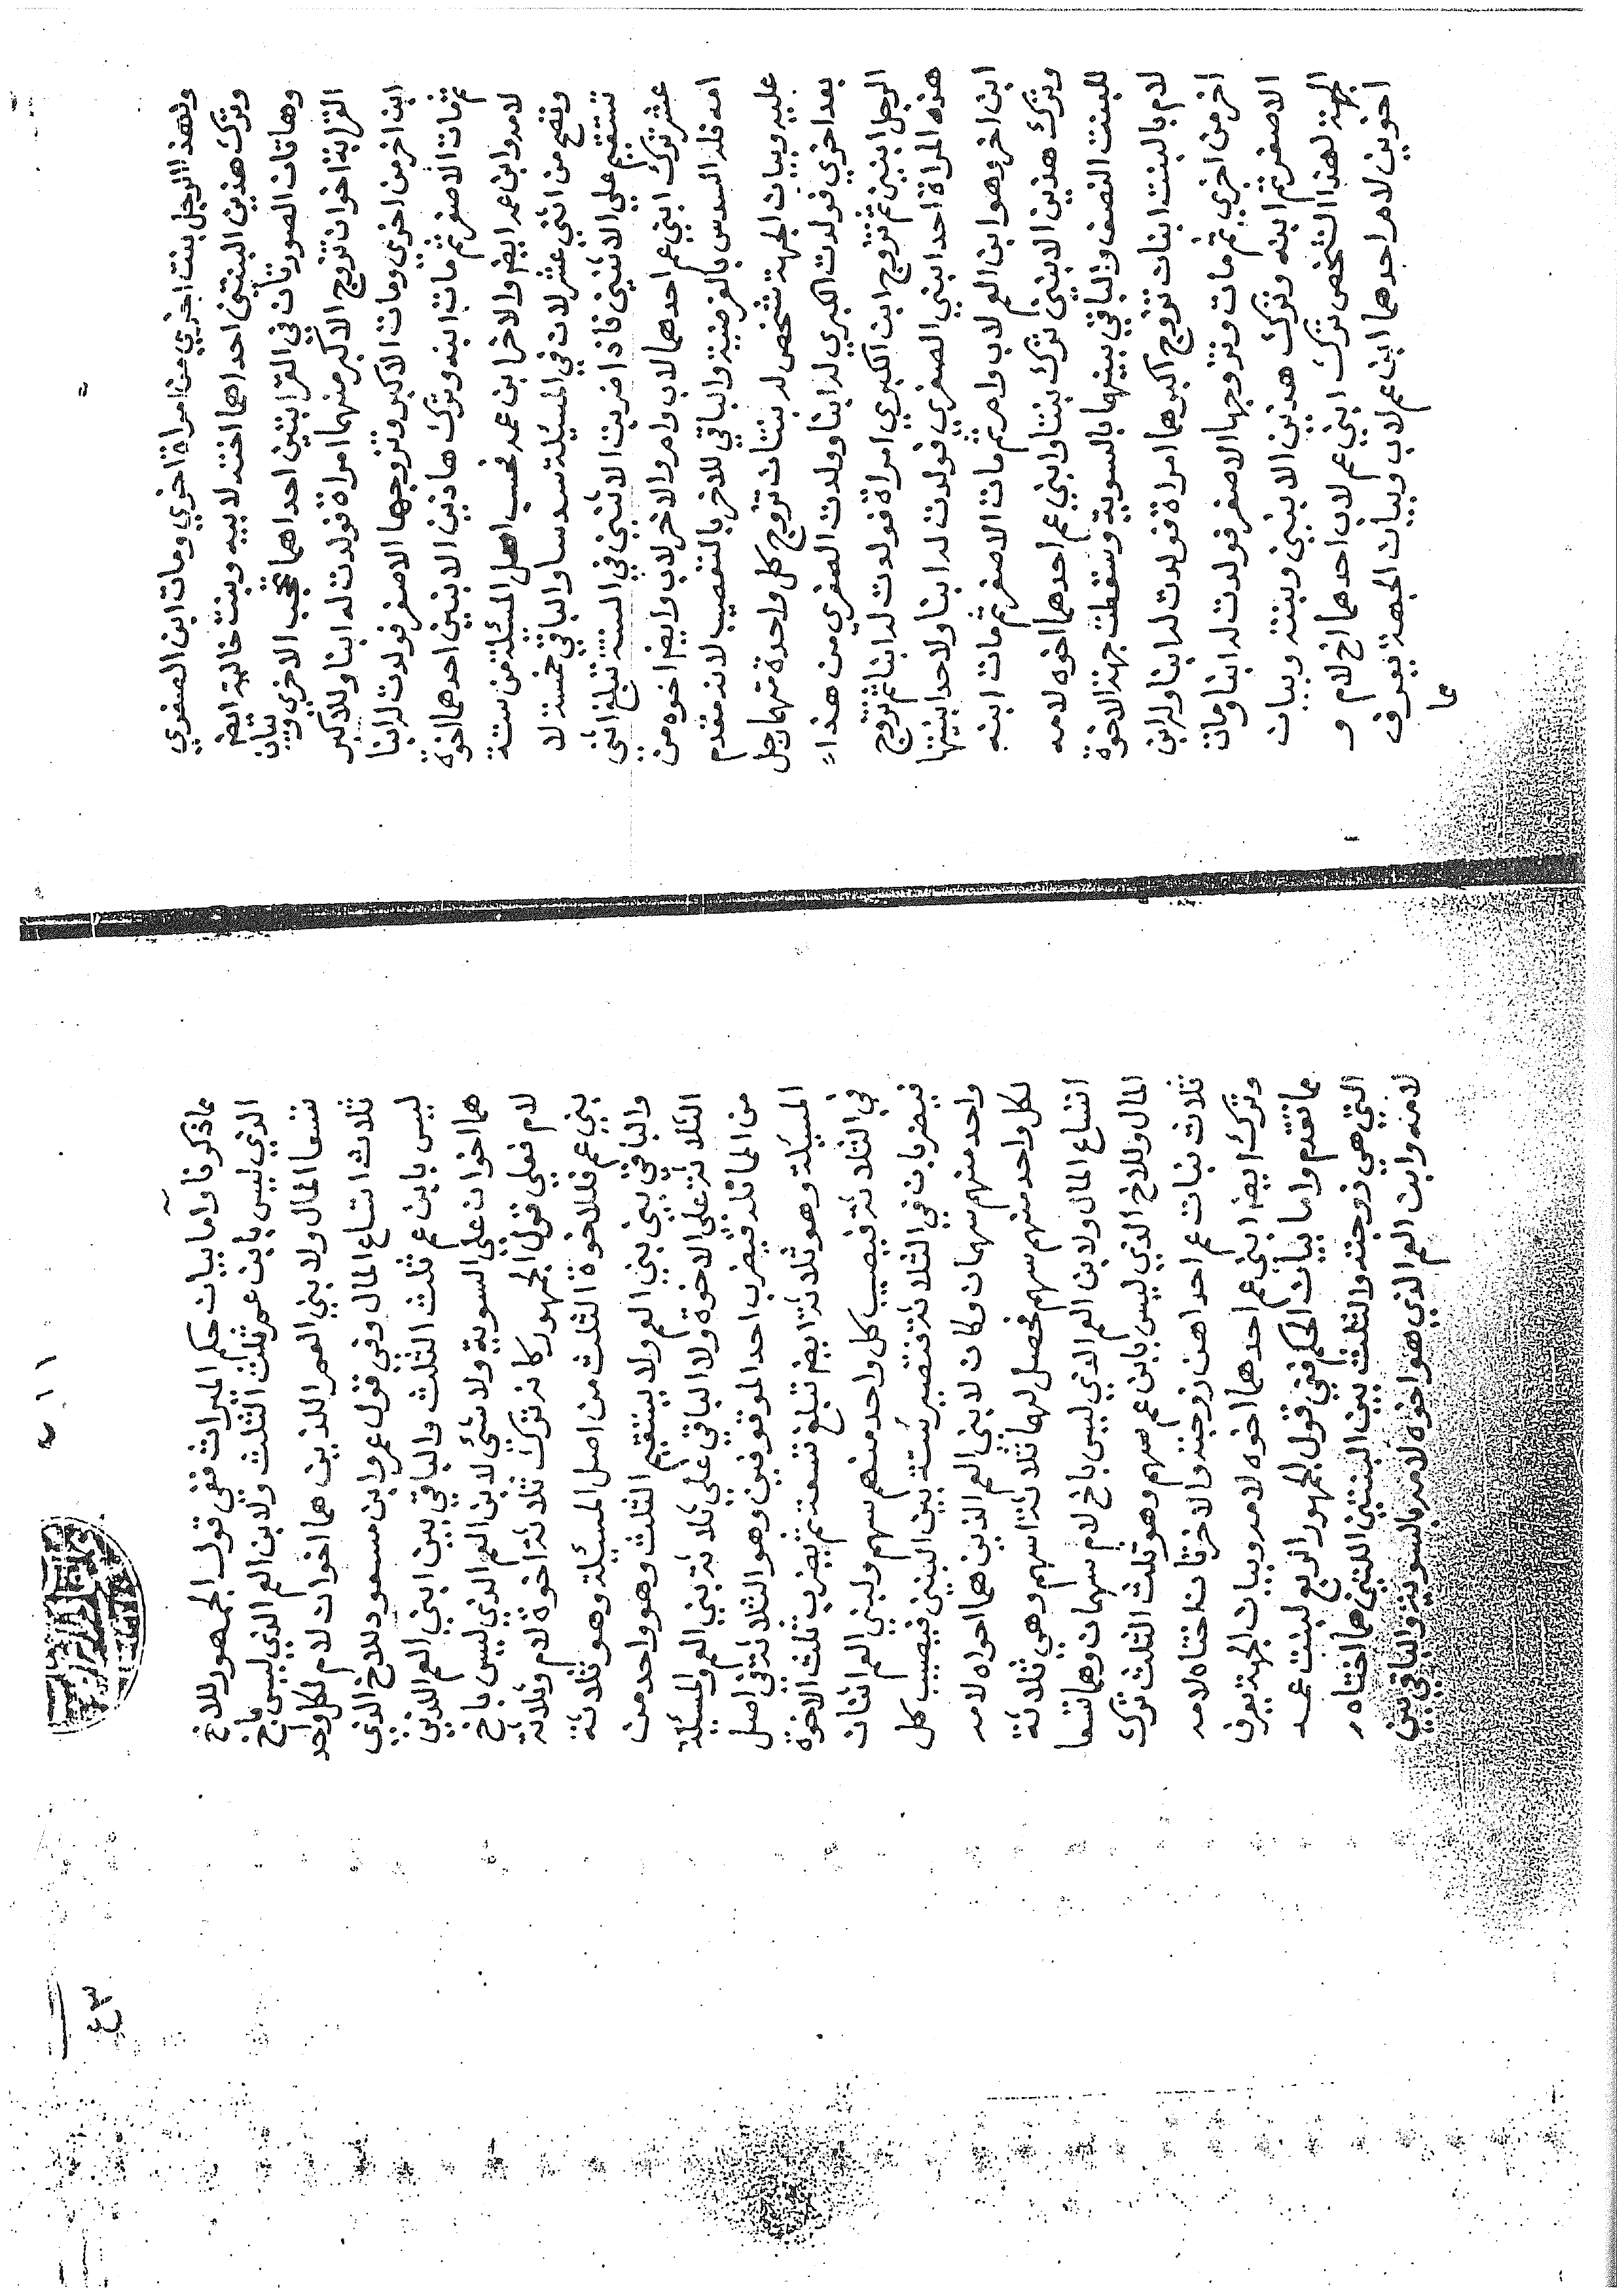 ولهذا الرجل بنت اخري من امراة اخري ومات ابن الصغري
وترك هذين البنتين احداهما اخته لابيه وبنت خالته ايضا
وهاتان الصورتان في القرابتين احداهما تحجب الاخري وبيان
القرابة اخوان تزوج الاكبر منهما امراة فولدت له ابنا وللاكبر
ابن اخر من اخري ومات الاكبر وتزوجها الاصغر فولدت له ابنا
ثم مات الاصغر ثم مات ابنه وترك هاذين الابنين احدهما اخوه
لامه وابن عمه ايضا والاخر ابن عمه فحسب اصل المسئلة من ستة
وتصح من اثني عشر لان في المسئلة سدسا والباقي خمسة لا
تستقيم علي الاثنين فاذا ضربت الاثنين في الستة تبلغ اثني
عشر ترك ابني عم احدهما لاب وام والاخر لاب وايضا اخوه من
امه فله السدس بالفرضية والباقي للاخر بالتعصيب لانه مقدم
عليه وبيان الجهة شخص له بنتان تزوج كل واحدة منهما رجل
بعد اخري فولدت الكبري له ابنا وولدت الصغري من هذا
الرجل ابنين ثم تزوج ابن الكبري امراة فولدت له ابنا ثم تزوج
هذه المراة احد ابني الصغري فولدت له ابنا ولاحد ابنيها
ابن اخر وهو ابن العم لاب وام ثم مات الاصغر ثم مات ابنه
وترك هذين الابنين ترك بنتا وابني عم احدهما اخوه لامه
للبنت النصف والباقي بينهما بالسوية وسقطت جهة الاخوة
لام بالبنت ابنان تزوج اكبرهما امراة فولدت له ابنا وله ابن
اخر من اخري ثم مات وتزوجها الاصغر فولدت له ابنا ومات
الاصغر ثم ابنه وترك هذين الابنين وبنته وبيان
الجهة لهذا الشخص ترك ابني عم لاب احدهما اخ لام و
اخوين لام احدهما ابن عم لاب وبيان الجهة يعرف
مما
مما ذكرنا واما بيان حكم الميراث ففي قول الجمهور للاخ
الذي ليس بابن عم ثلث الثلث ولابن العم الذي ليس باخ
تسعا المال ولابني العم اللذين هما اخوان لام لكل واحد
ثلاث اتساع المال وفي قول عمر وابن مسعود للاخ الذي
ليس بابن عم ثلث الثلث والباقي بين ابني العم اللذين
هما اخوان علي السوية ولا شئ لابن العم الذي ليس باخ
لام فعلي قول الجمهور كانه ترك ثلاثة اخوة لام وثلاثة
بني عم فللاخوة الثلث من اصل المسئلة وهو ثلاثة
والباقي بين بني العم ولا يستقيم الثلث وهو واحد من
الثلاثة علي الاخوة ولا الباقي علي ثلاثة بني العم والمسئلة
من المماثلة فيضرب احد الموقوفين وهو الثلاثة في اصل
المسئلة وهو ثلاثة ايضا تبلغ تسعة ثم يضرب ثلث الاخوة
في الثلاثة فيصيب كل واحد منهم سهم ولبني العم اثنان
فيضربان في الثلاثة فتصير ستة بين البنين فيصيب كل
واحد منهم سهمان وكان لابني العم الذين هما اخواه لامه
لكل واحد منهم سهم فحصل لهما ثلاثة اسهم وهي ثلاثة
اتساع المال ولابن العم الذي ليس باخ لام سهمان وهما تسعا
المال وللاخ الذي ليس بابن عم سهم وهو ثلث الثلث ترك
ثلاث بنات عم احداهن زوجته والاخرتان اختاه لامه
وترك ايضا ابني عم احدهما اخوه لامه وبيان الجهة يعرف
مما تقدم واما بيان الحكم ففي قول الجمهور الربع لبنت عمه
التي هي زوجته والثلث بين البنتين اللتين هما اختاه
لامه وابن العم الذي هو اخوه لامه بالسوية والباقي بين
٤٣